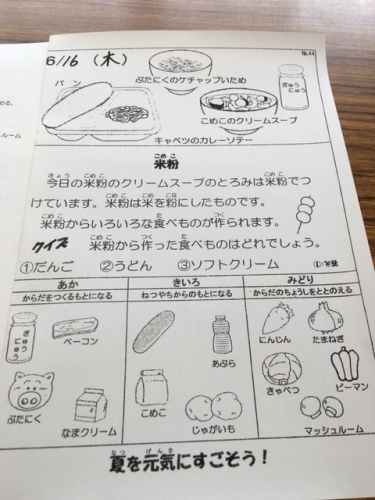 No.44
6/16 (木)
ぶたにくのケチャップいため
パン
ぎゅうにゅう
こめこのクリームスープ
キャベツのカレーソテー
こめ こ
米粉
きょう こめこ こめこ
今日の米粉のクリームスープのとろみは米粉でつ
こめこ こめ こな
けています。米粉は米を粉にしたものです。
こめこ た つく
米粉からいろいろな食べものが作られます。
こめこ つく た
クイズ 米粉から作った食べものはどれでしょう。
①だんご ②うどん ③ソフトクリーム
あか きいろ みどり
からだをつくるもとになる ねつやちからのもとになる からだのちょうしをととのえる
ぎゅうにゅう
ベーコン
あぶら
にんじん
たまねぎ
ぶたにく
なまクリーム
こめこ
じゃがいも
きゃべつ
ピーマン
マッシュルーム
なつ げんき
夏を元気にすごそう!